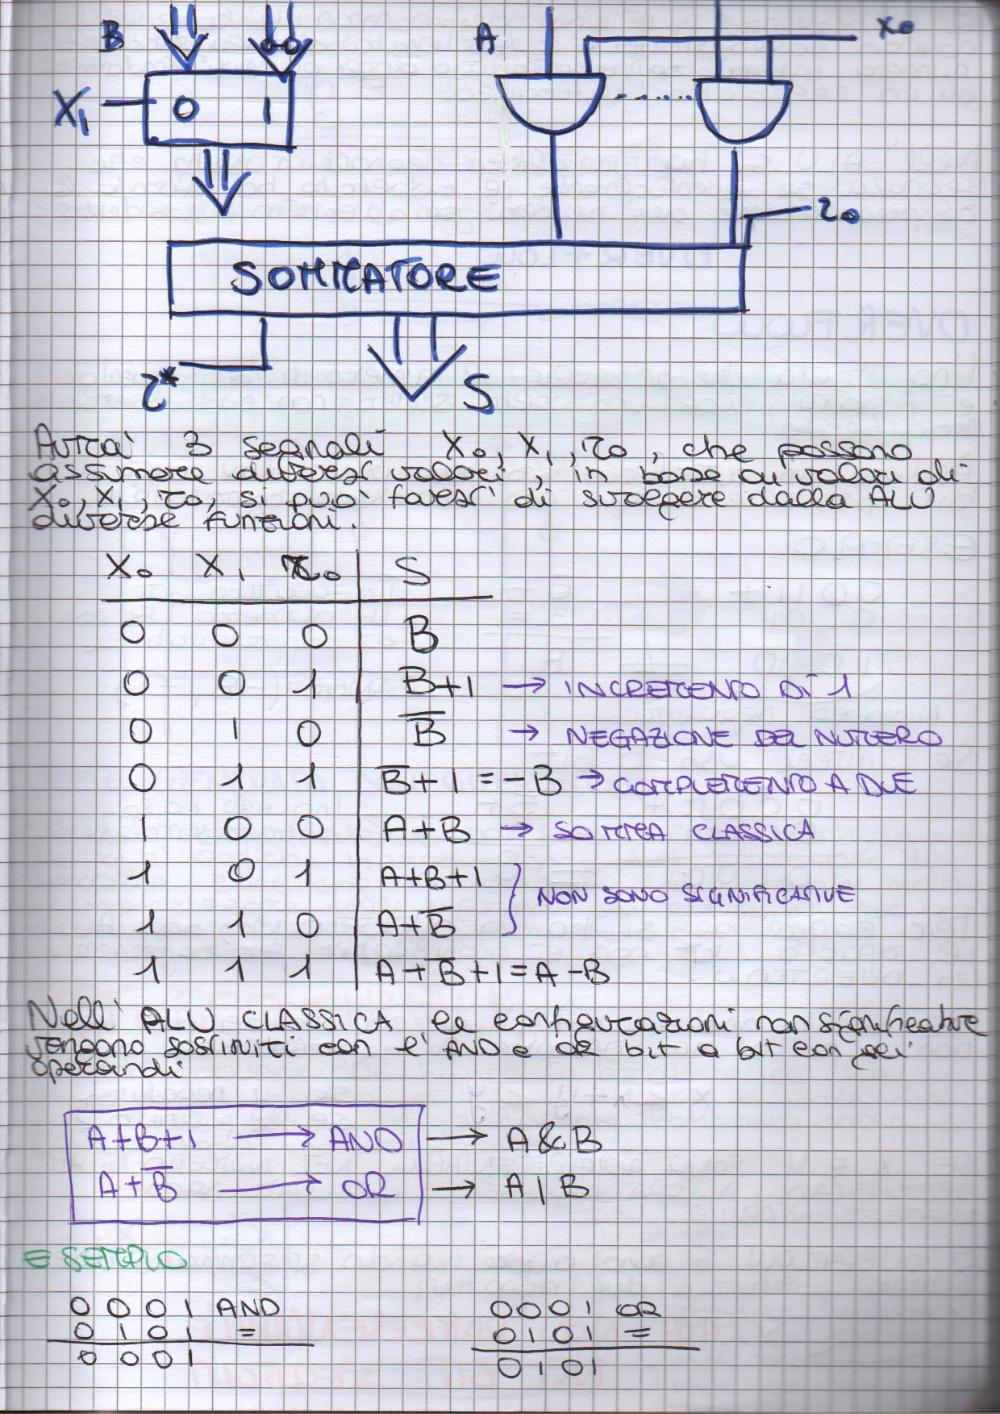 B A X0
X1 0 1
r0
SOMMATORE
r* S
Avrà 3 segnali X0, X1, r0, che possono
assumere diversi valori, in base ai valori di
X0, X1, r0, si può farsi di svolgere dalla ALU
diverse funzioni.
X0 X1 r0 S
0 0 0 B
0 0 1 B+1 → INCREMENTO DI 1
0 1 0 B̅ → NEGAZIONE DEL NUMERO
0 1 1 B̅+1=-B → COMPLEMENTO A DUE
1 0 0 A+B → SOMMA CLASSICA
1 0 1 A+B+1 } NON SONO SIGNIFICATIVE
1 1 0 A+B̅
1 1 1 A+B̅+1=A-B
Nell' ALU CLASSICA le configurazioni non significative
vengono sostituiti con l'AND e OR bit a bit con gli
operandi
A+B+1 → AND → A&B
A+B̅ → OR → A|B
ESEMPIO
0001 AND 0001 OR
0101 = 0101 =
0001 0101